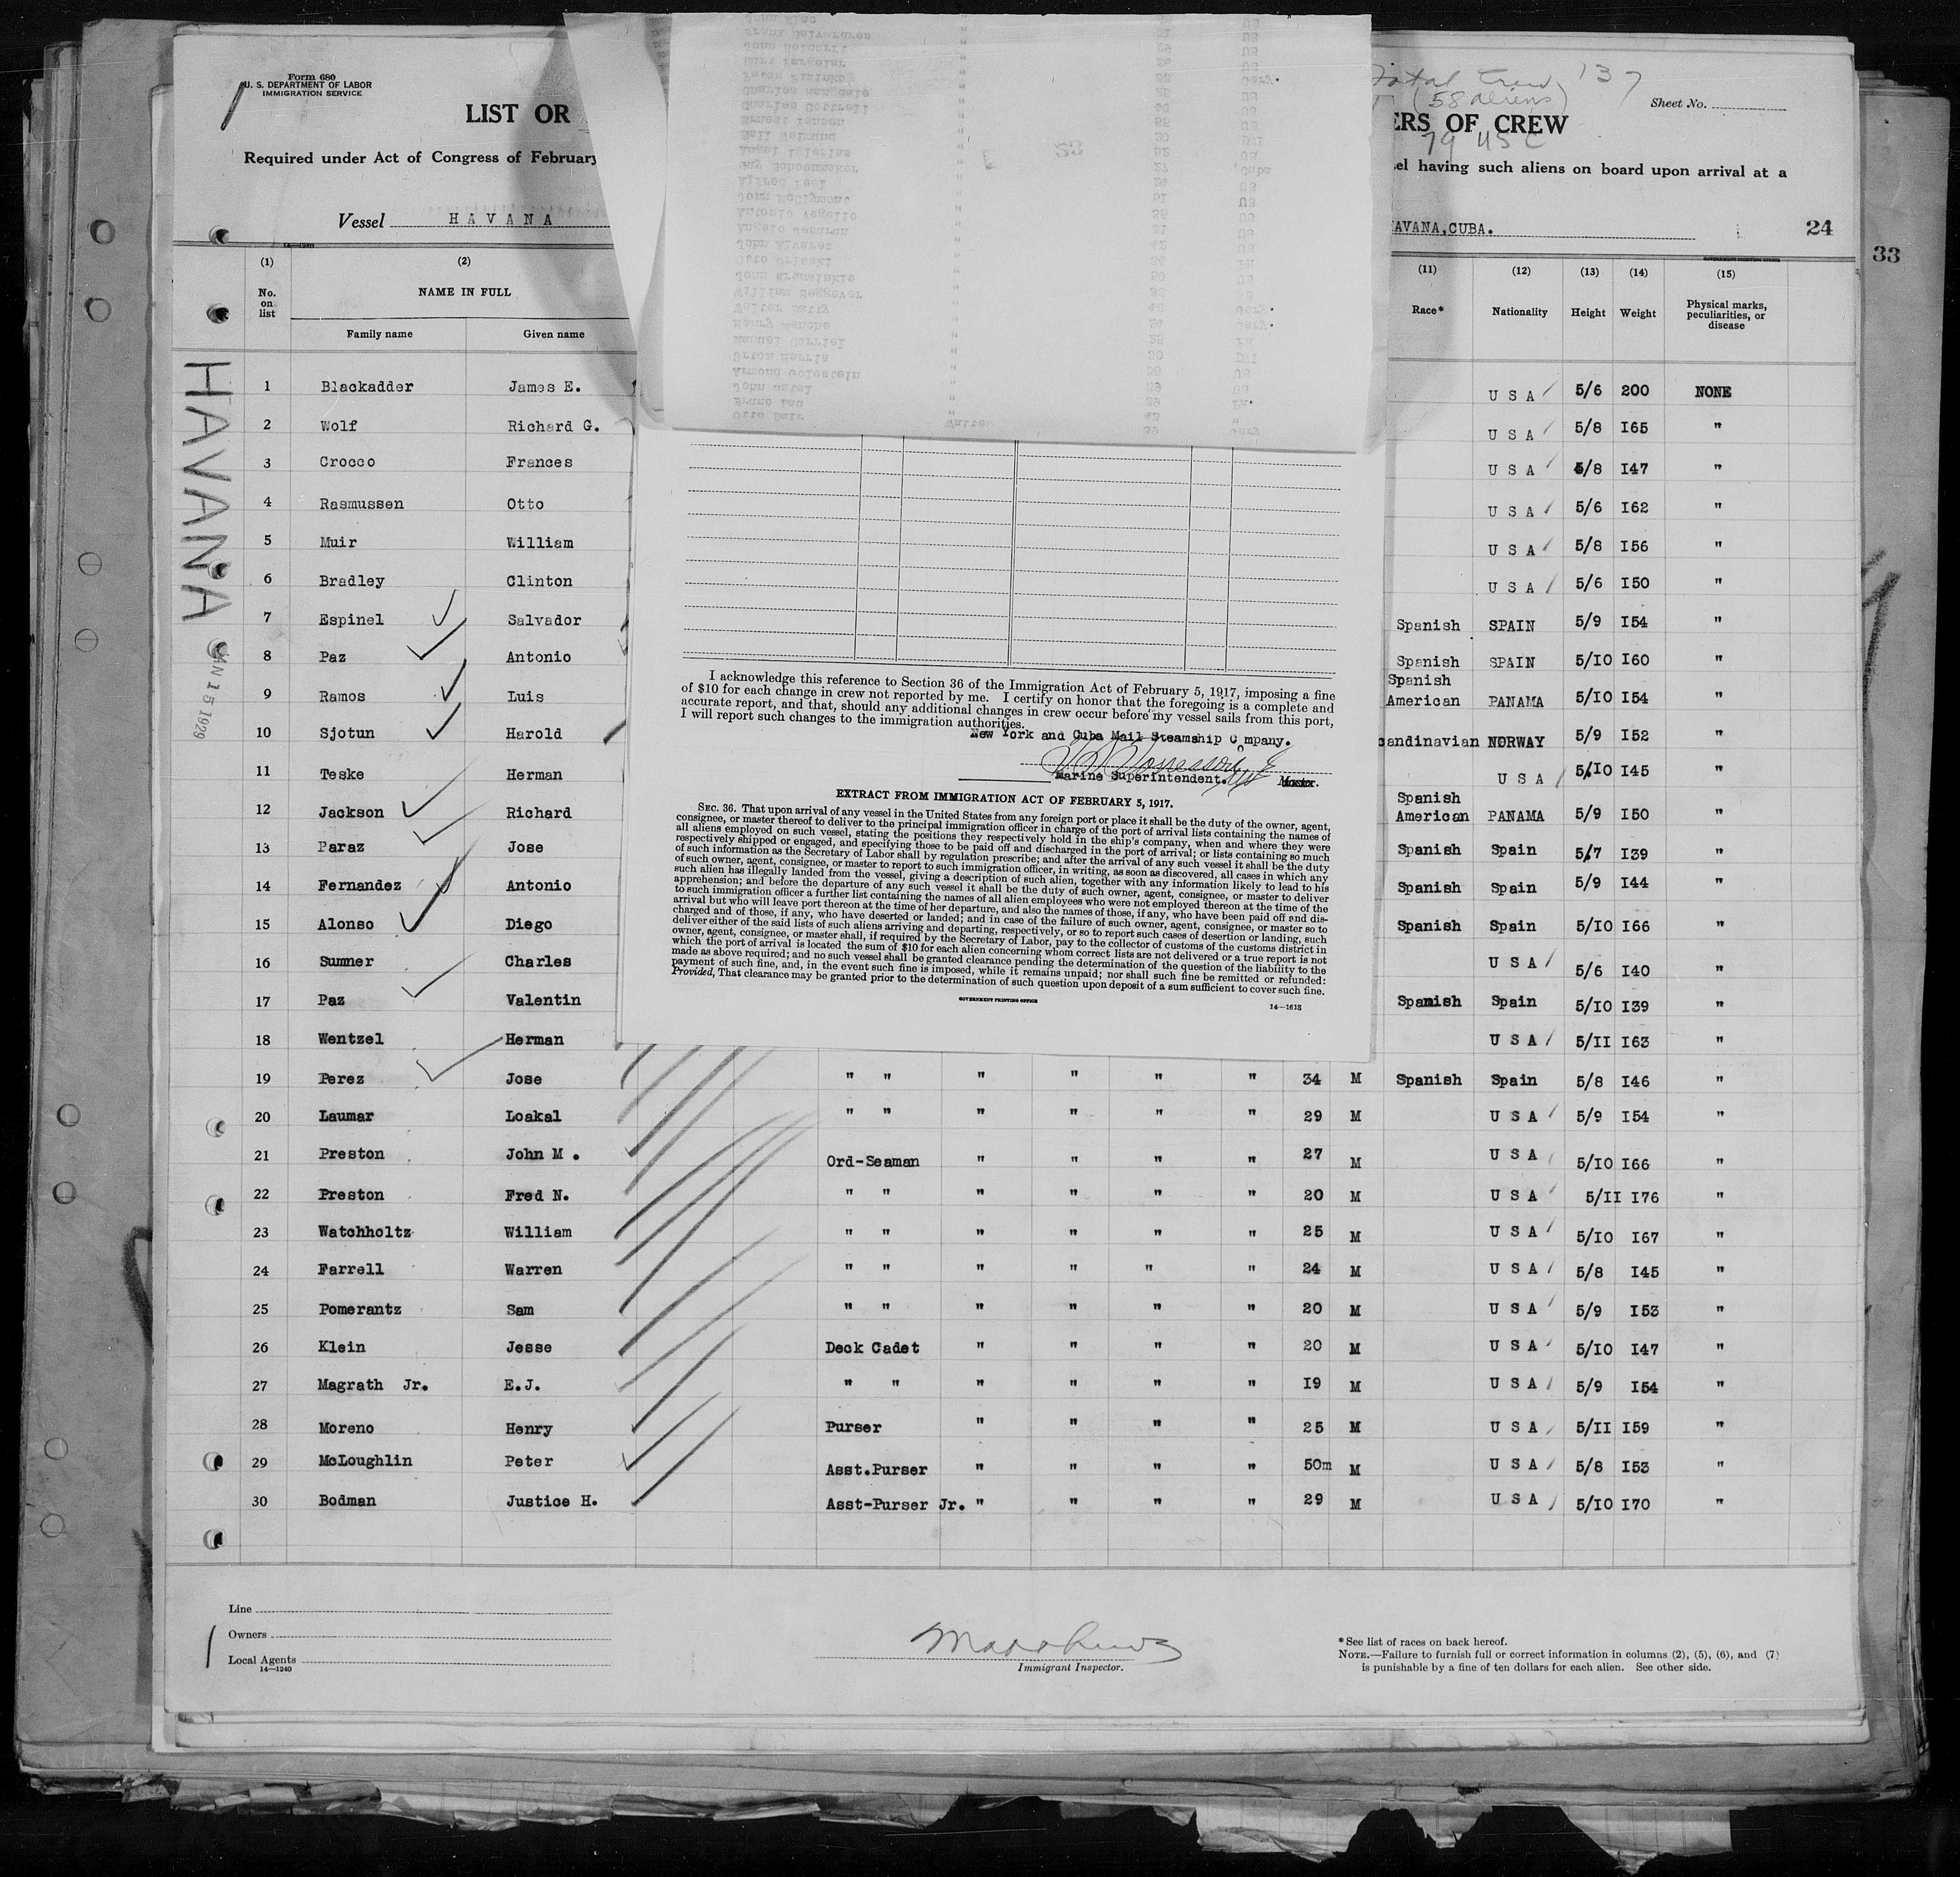 Form 680
U. S. DEPARTMENT OF LABOR
IMMIGRATION SERVICE
LIST OR
ERS OF CREW
Total Crew 137
(58 aliens)
79 USC
Sheet No.
Required under Act of Congress of February
sel having such aliens on board upon arrival at a
Vessel HAVANA
HAVANA,CUBA.
24
33
14—1240
GOVERNMENT PRINTING OFFICE
(1) (2) (11) (12) (13) (14) (15)
No. on list NAME IN FULL Race* Nationality Height Weight Physical marks, peculiarities, or disease
Family name Given name
HAVANA
JAN 15 1929
1 Blackadder James E. U S A 5/6 200 NONE
2 Wolf Richard G. U S A 5/8 I65 "
3 Crocco Frances U S A 5/8 I47 "
4 Rasmussen Otto U S A 5/6 I62 "
5 Muir William U S A 5/8 I56 "
6 Bradley Clinton U S A 5/6 I50 "
7 Espinel Salvador Spanish SPAIN 5/9 I54 "
8 Paz Antonio Spanish SPAIN 5/I0 I60 "
9 Ramos Luis Spanish American PANAMA 5/I0 I54 "
10 Sjotun Harold candinavian NORWAY 5/9 I52 "
11 Teske Herman U S A 5/I0 I45 "
12 Jackson Richard Spanish American PANAMA 5/9 I50 "
13 Paraz Jose Spanish Spain 5/7 I39 "
14 Fernandez Antonio Spanish Spain 5/9 I44 "
15 Alonso Diego Spanish Spain 5/I0 I66 "
16 Sumner Charles U S A 5/6 I40 "
17 Paz Valentin Spanish Spain 5/I0 I39 "
18 Wentzel Herman U S A 5/II I63 "
19 Perez Jose " " " " " " 34 M Spanish Spain 5/8 I46 "
20 Laumar Loakal " " " " " " 29 M U S A 5/9 I54 "
21 Preston John M . Ord-Seaman " " " " 27 M U S A 5/I0 I66 "
22 Preston Fred N. " " " " " " 20 M U S A 5/II I76 "
23 Watchholtz William " " " " " " 25 M U S A 5/I0 I67 "
24 Farrell Warren " " " " " " 24 M U S A 5/8 I45 "
25 Pomerantz Sam " " " " " " 20 M U S A 5/9 I53 "
26 Klein Jesse Deck Cadet " " " " 20 M U S A 5/I0 I47 "
27 Magrath Jr. E.J. " " " " " " I9 M U S A 5/9 I54 "
28 Moreno Henry Purser " " " " 25 M U S A 5/II I59 "
29 McLoughlin Peter Asst.Purser " " " " 50m M U S A 5/8 I53 "
30 Bodman Justice H. Asst-Purser Jr. " " " " 29 M U S A 5/I0 I70 "
I acknowledge this reference to Section 36 of the Immigration Act of February 5, 1917, imposing a fine
of $10 for each change in crew not reported by me. I certify on honor that the foregoing is a complete and
accurate report, and that, should any additional changes in crew occur before my vessel sails from this port,
I will report such changes to the immigration authorities.
New York and Cuba Mail Steamship Company.
Marine Superintendent. Master.
EXTRACT FROM IMMIGRATION ACT OF FEBRUARY 5, 1917.
SEC. 36. That upon arrival of any vessel in the United States from any foreign port or place it shall be the duty of the owner, agent,
consignee, or master thereof to deliver to the principal immigration officer in charge of the port of arrival lists containing the names of
all aliens employed on such vessel, stating the positions they respectively hold in the ship's company, when and where they were
respectively shipped or engaged, and specifying those to be paid off and discharged in the port of arrival; or lists containing so much
of such information as the Secretary of Labor shall by regulation prescribe; and after the arrival of any such vessel it shall be the duty
of such owner, agent, consignee, or master to report to such immigration officer, in writing, as soon as discovered, all cases in which any
such alien has illegally landed from the vessel, giving a description of such alien, together with any information likely to lead to his
apprehension; and before the departure of any such vessel it shall be the duty of such owner, agent, consignee, or master to deliver
to such immigration officer a further list containing the names of all alien employees who were not employed thereon at the time of the
arrival but who will leave port thereon at the time of her departure, and also the names of those, if any, who have been paid off and dis-
charged and of those, if any, who have deserted or landed; and in case of the failure of such owner, agent, consignee, or master so to
deliver either of the said lists of such aliens arriving and departing, respectively, or so to report such cases of desertion or landing, such
owner, agent, consignee, or master shall, if required by the Secretary of Labor, pay to the collector of customs of the customs district in
which the port of arrival is located the sum of $10 for each alien concerning whom correct lists are not delivered or a true report is not
made as above required; and no such vessel shall be granted clearance pending the determination of the question of the liability to the
payment of such fine, and, in the event such fine is imposed, while it remains unpaid; nor shall such fine be remitted or refunded:
Provided, That clearance may be granted prior to the determination of such question upon deposit of a sum sufficient to cover such fine.
GOVERNMENT PRINTING OFFICE
14—1618
Line
Owners
Local Agents
14—1240
Immigrant Inspector.
*See list of races on back hereof.
NOTE.—Failure to furnish full or correct information in columns (2), (5), (6), and (7)
is punishable by a fine of ten dollars for each alien. See other side.